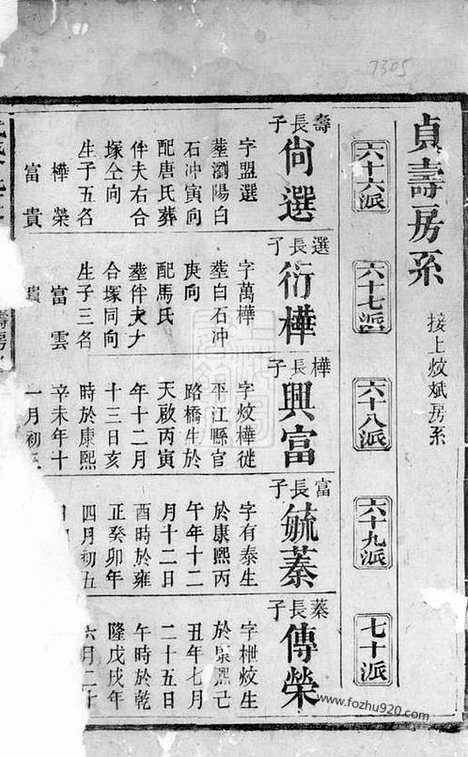 7305
貞壽房系 接上炆斌房系
六十六派
六十七派
六十八派
六十九派
七十派
壽長子 尙選
字盟選
塟瀏陽白
石冲寅向
配唐氏葬
伴夫右合
塚仝向
生子五名
樺 榮
富 貴
選長子 衍樺
字萬樺
塟白石冲
庚向
配馬氏
塟伴夫大
合塚同向
生子三名
富 雲
樺長子 興富
字炆樺徙
平江縣官
路橋生於
天啟丙寅
年十二月
十三日亥
時於康熙
辛未年十
一月初
富長子 毓蓁
字有泰生
於康熙丙
午年十二
月十二日
酉時於雍
正癸卯年
四月初五
蓁長子 傳榮
字枻炆生
於康熙己
丑年七月
二十五日
午時於乾
隆戊戌年
六月二十
www.fozhu920.com